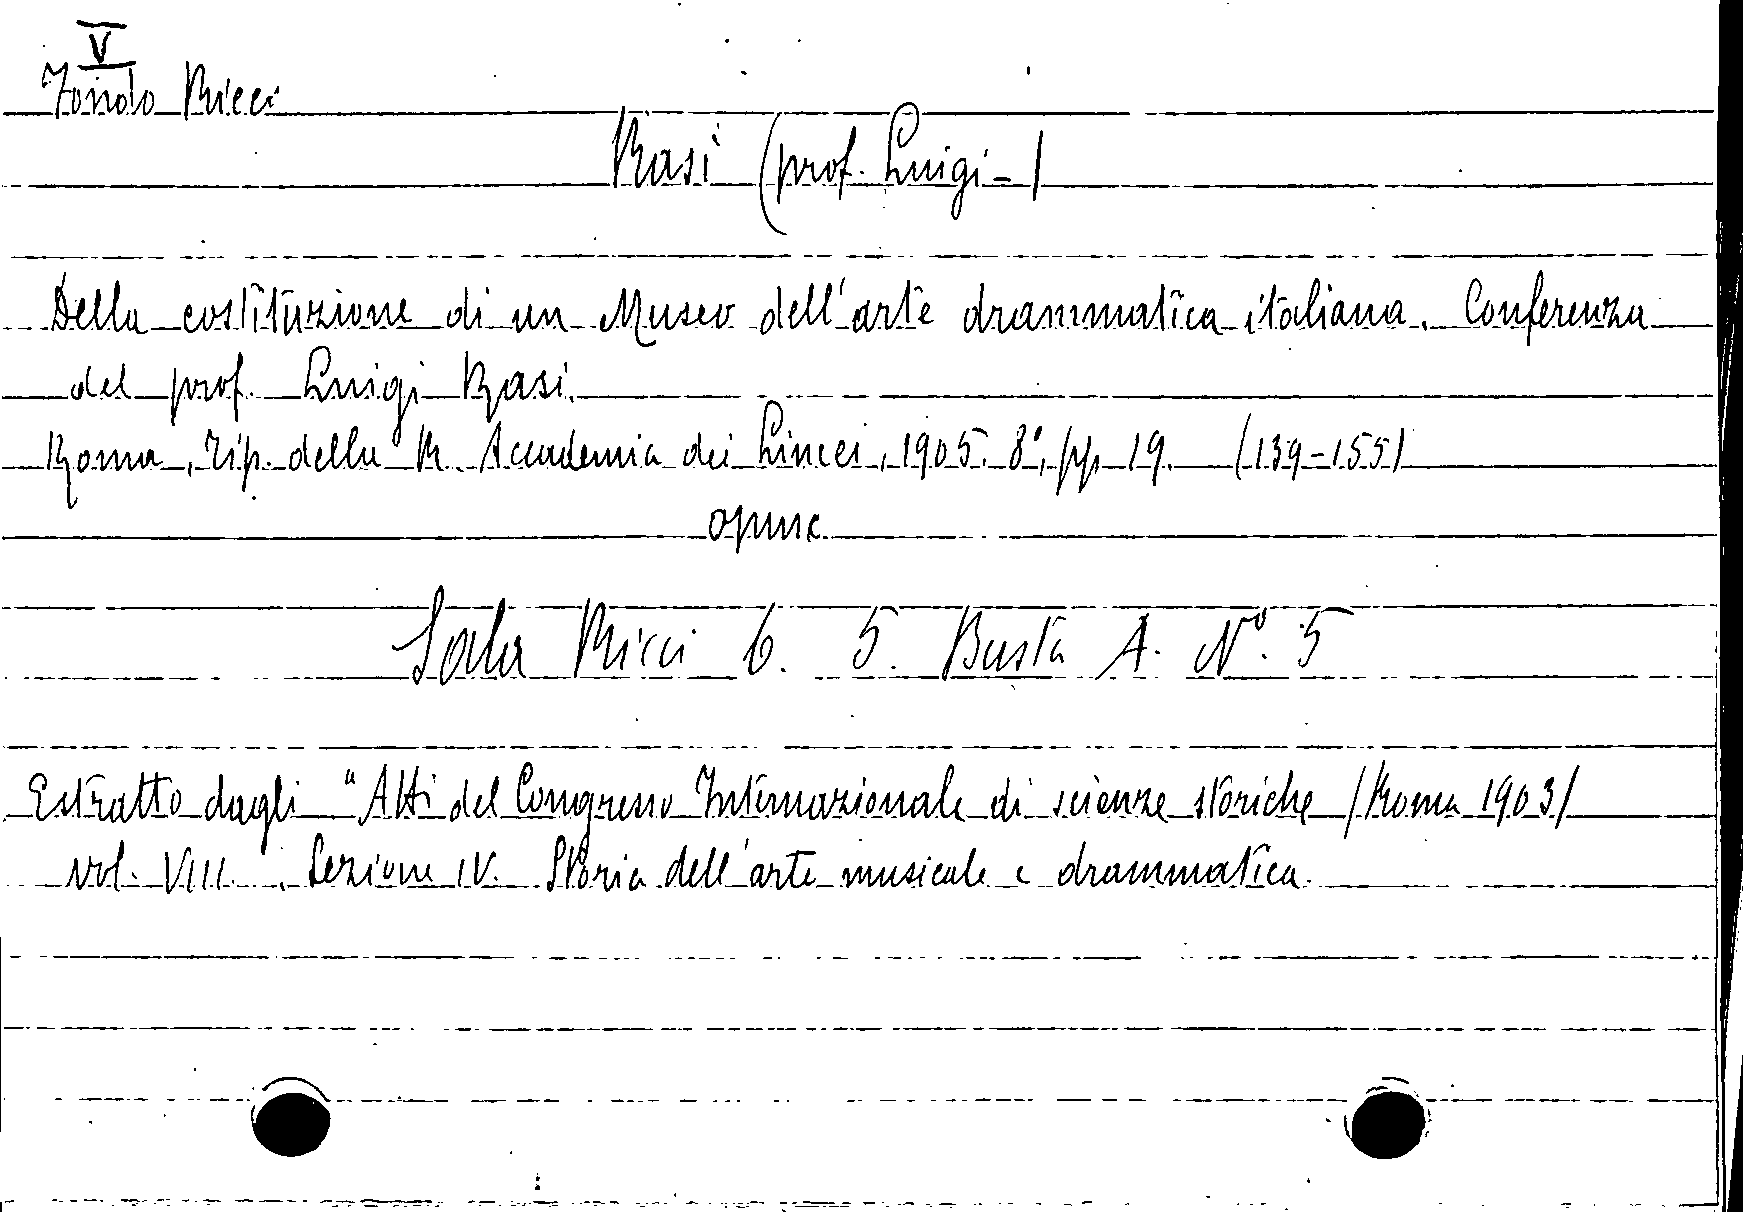 V
Fondo Ricci
Rasi (prof. Luigi-)
Della costituzione di un Museo dell'arte drammatica italiana. Conferenza
del prof. Luigi Rasi.
Roma, Tip. della R. Accademia dei Lincei, 1905. 8°, pp. 19. (139-155)
opusc.
Sala Ricci 6. 5. Busta A. N°. 5
Estratto dagli "Atti del Congresso Internazionale di scienze storiche (Roma 1903)
vol. VIII. Sezione IV. Storia dell'arte musicale e drammatica.